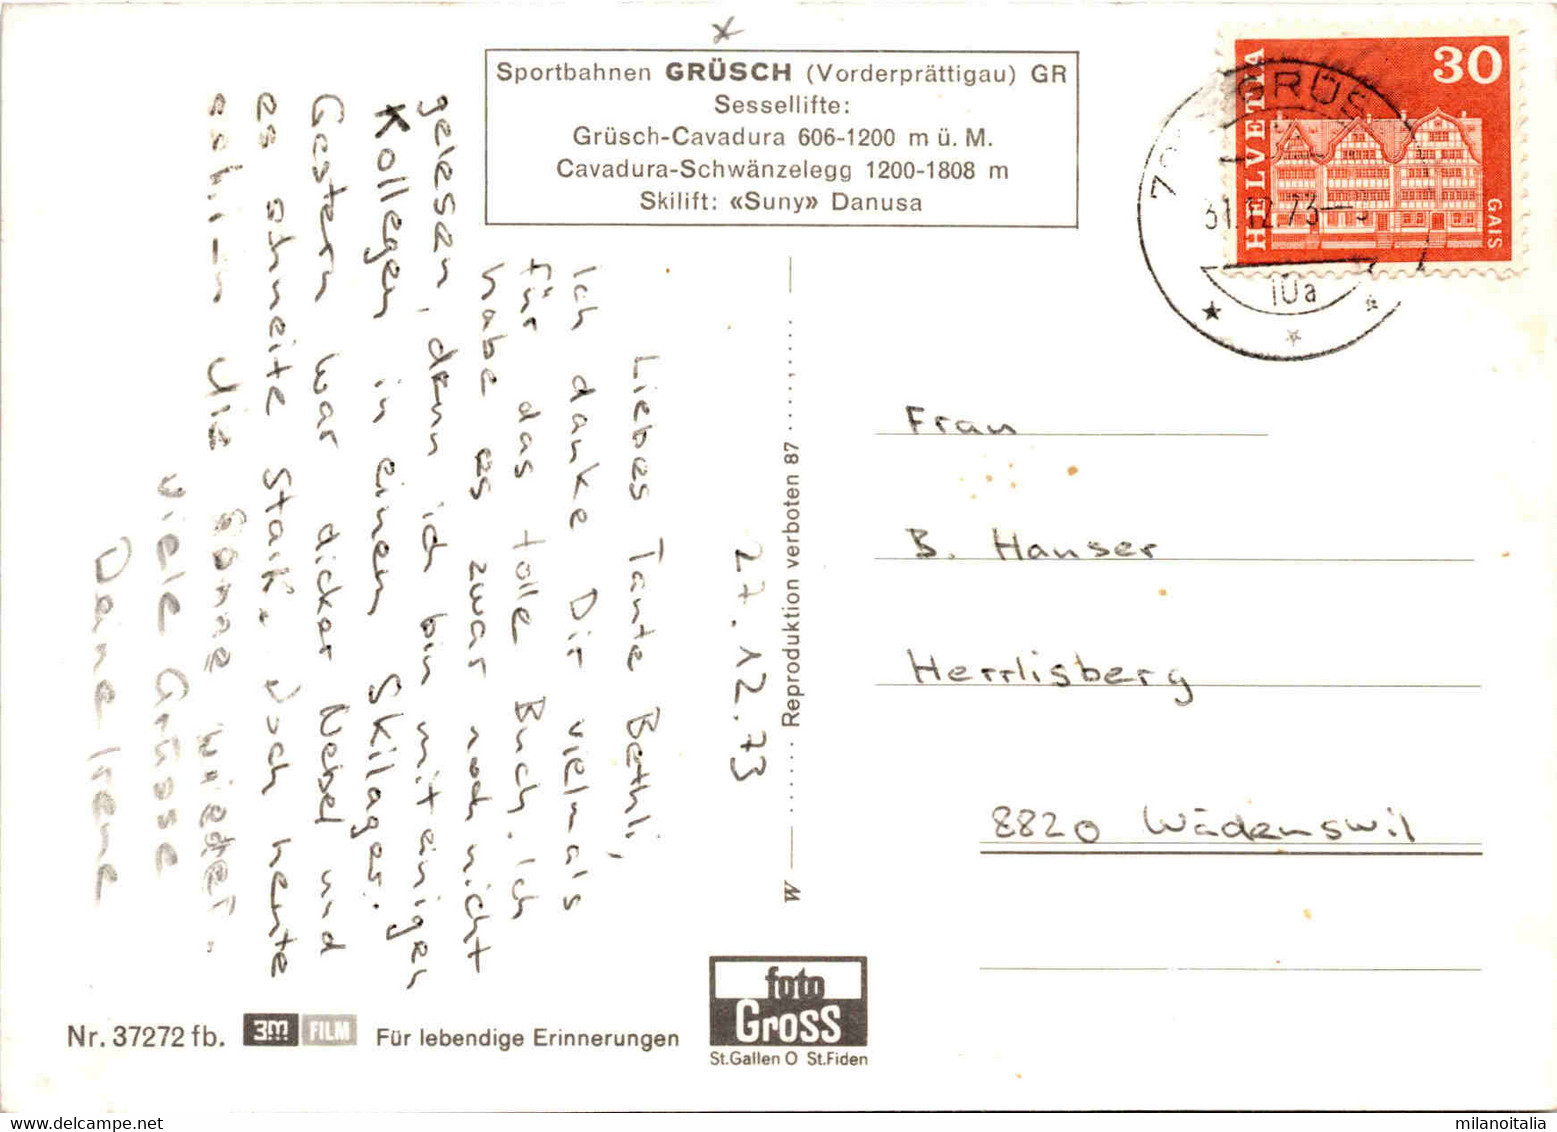 Sportbahnen GRÜSCH (Vorderprättigau) GR
Sessellifte:
Grüsch-Cavadura 606-1200 m ü. M.
Cavadura-Schwänzelegg 1200-1808 m
Skilift: «Suny» Danusa
HELVETIA
30
GAIS
GRÜS
31.12.73
10a
27.12.73
Liebes Tante Bethli,
Ich danke Dir vielmals
für das tolle Buch. Ich
habe es zwar noch nicht
gelesen, denn ich bin mit einigen
Kollegen in einem Skilager.
Gestern war dicker Nebel und
es schneite stark. Doch heute
schien die Sonne wieder.
Viele Grüsse
Deine Irene
W Reproduktion verboten 87
Frau
B. Hauser
Herrlisberg
8820 Wädenswil
Nr. 37272 fb.
3M FILM
Für lebendige Erinnerungen
foto
Gross
St.Gallen O St.Fiden
milanoitalia